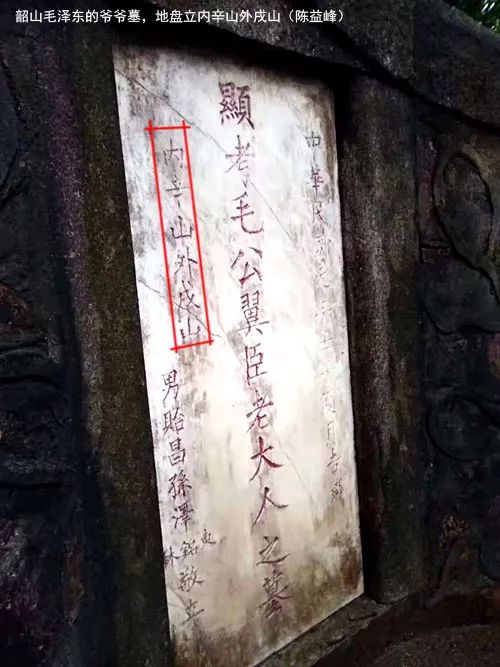 韶山毛泽东的爷爷墓，地盘立内辛山外戌山（陈益峰）
中華民國元年
顯考毛公翼臣老大人之墓
内辛山外戌山
男貽昌孫澤東銘林敬立